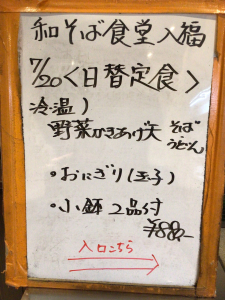 和そば食堂入福
7/20<日替定食>
冷温)
野菜かきあげ天 そば
うどん
・おにぎり(玉子)
・小鉢2品付
¥880-
入口こちら